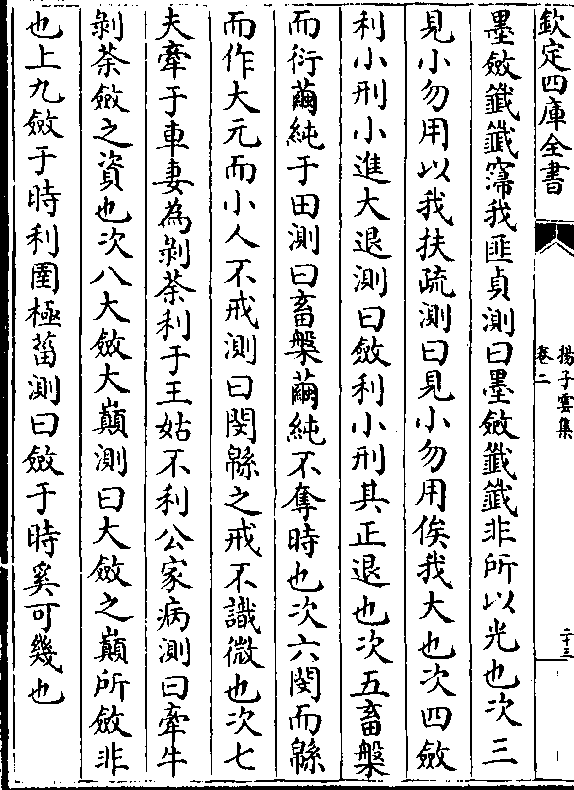 欽定四庫全書
揚子雲集
卷二
二十三
墨斂籤籤寖我匪貞測曰墨斂籤籤非所以光也次三
見小勿用以我扶疏測曰見小勿用俟我大也次四斂
利小刑小進大退測曰斂利小刑其正退也次五畜槃
而衍繭純于田測曰畜槃繭純不奪時也次六閔而緜
而作大元而小人不戒測曰閔緜之戒不識微也次七
夫牽于車妻為剝荼利于王姑不利公家病測曰牽牛
剝荼斂之資也次八大斂大巔測曰大斂之巔所斂非
也上九斂于時利圉極菑測曰斂于時奚可幾也